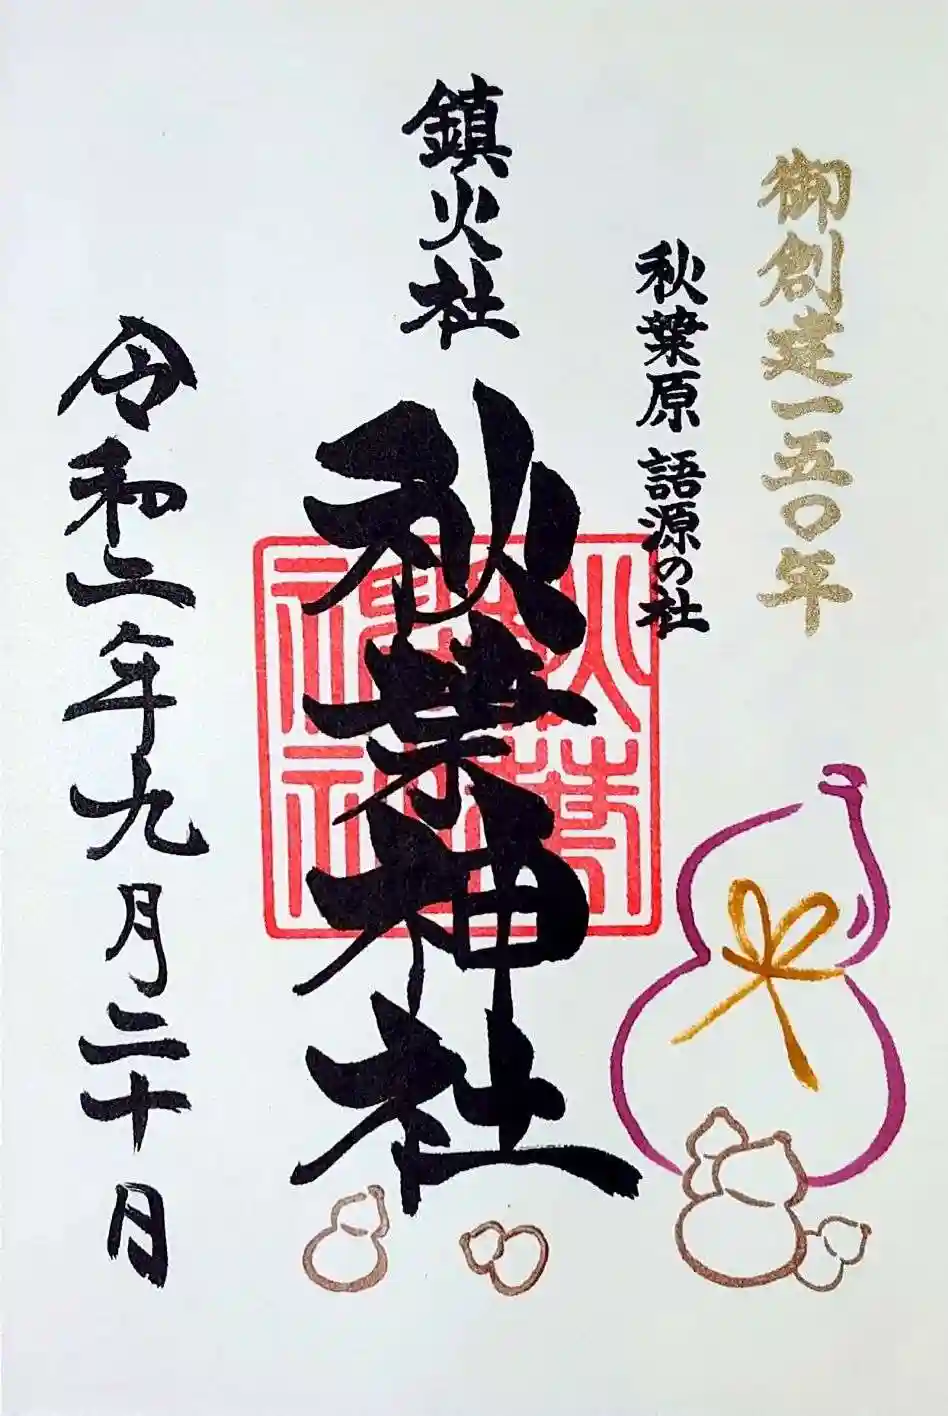 御創建一五〇年
秋葉原 語源の社
鎮火社
秋葉神社
令和二年九月二十日